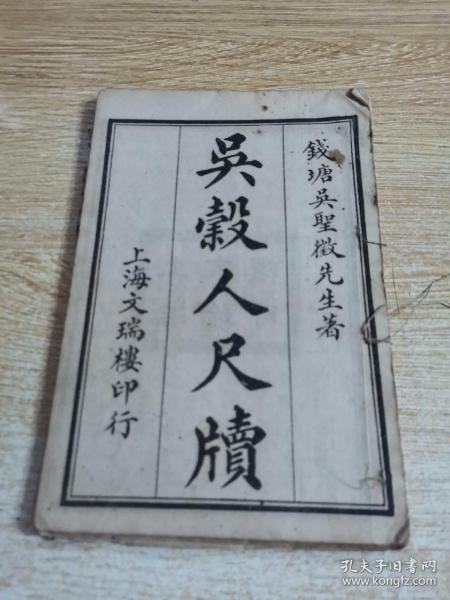 錢塘吳聖徵先生著
吳穀人尺牘
上海文瑞樓印行
孔夫子旧书网
www.kongfz.com